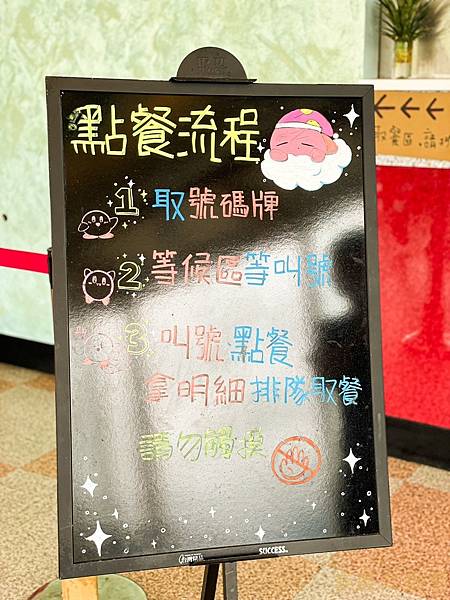 點餐流程
1 取號碼牌
2. 等候區等叫號
3. 叫號點餐
拿明細排隊取餐
請勿觸摸
SUCCESS
取餐區.請